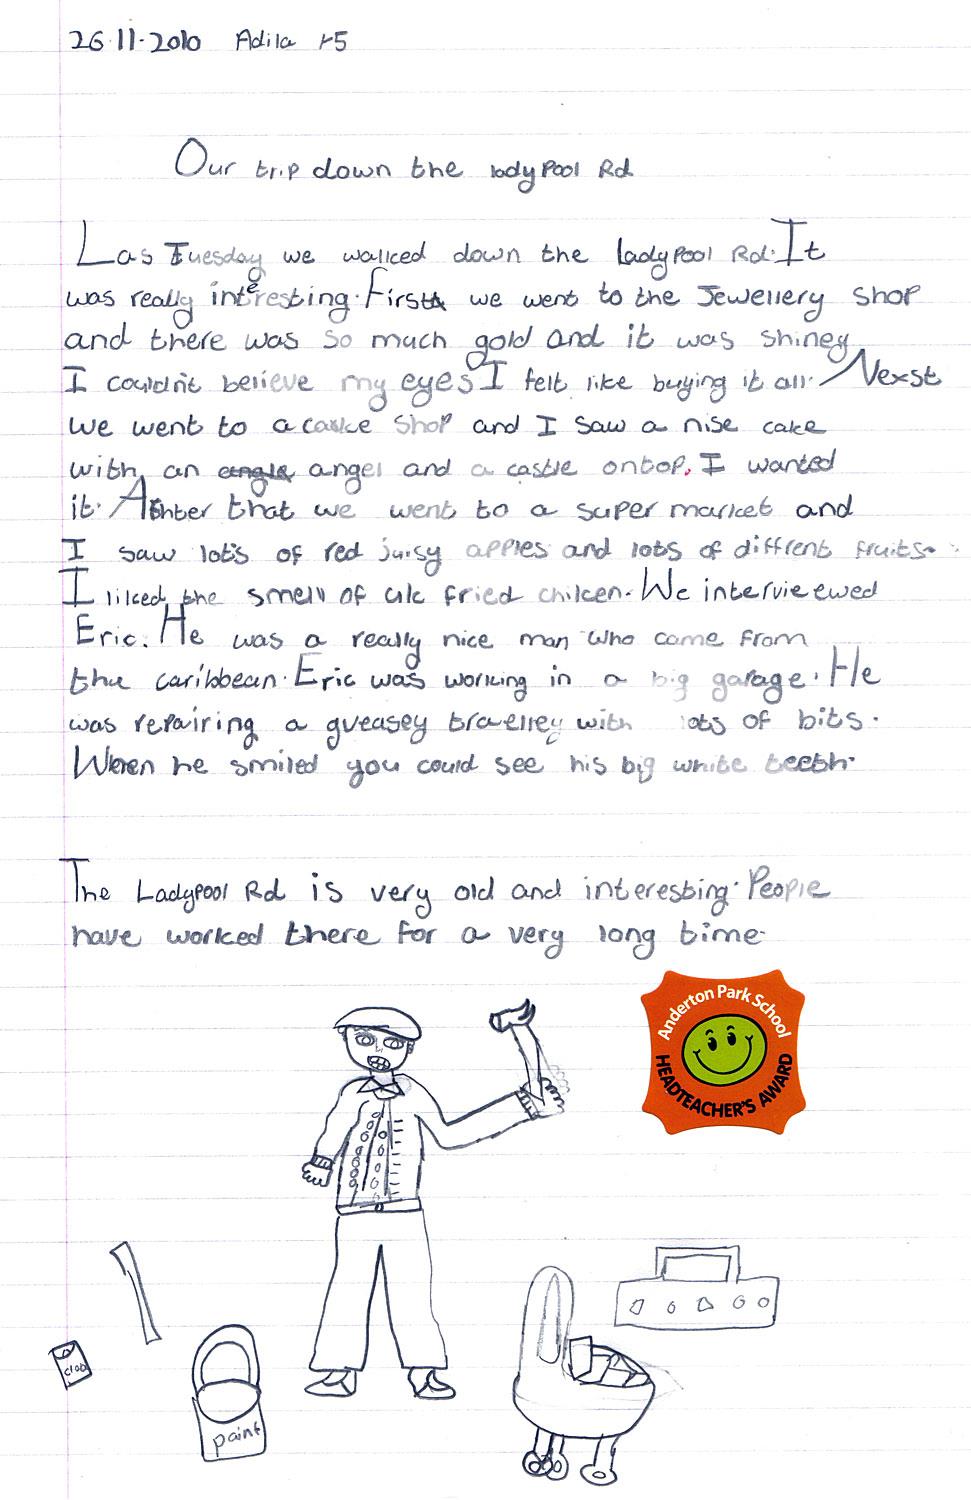 26·11·2010 Adila Y5
Our trip down the ladypool Rd
Las Tuesday we walked down the Ladypool Rd. It
was really interesting. First we went to the Jewellery shop
and there was so much gold and it was shiney
I couldn't believe my eyes I felt like buying it all. Nexst
we went to a cake shop and I saw a nise cake
with an angel and a castle ontop. I wanted
it. Ahter that we went to a super market and
I saw lots of red juisy apples and lots of diffrent fruits.
I liked the smell of fried chiken. We interviewed
Eric. He was a really nice man who came from
the caribbean. Eric was working in a big garage. He
was repairing a greasey trolley with lots of bits.
When he smiled you could see his big white teeth.
The Ladypool Rd is very old and interesting. People
have worked there for a very long time.
Anderton Park School
HEADTEACHER'S AWARD
paint